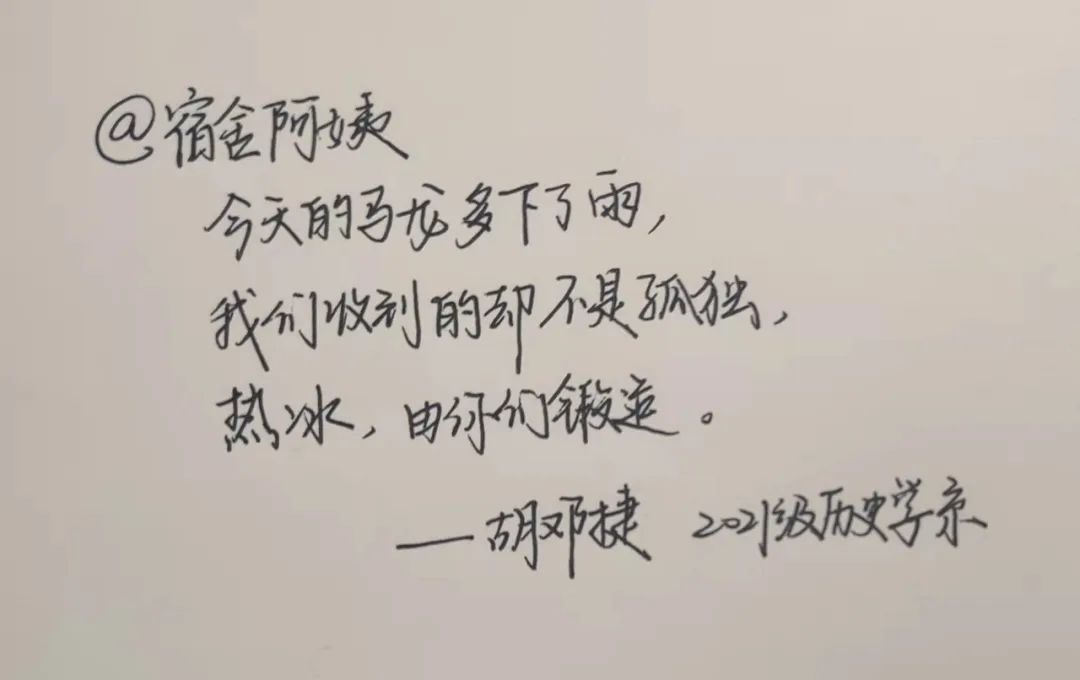 @宿舍阿姨
今天的马龙多下了雨,
我们收到的却不是孤独,
热冰,由你们锻造。
——胡邓捷 2021级历史学系